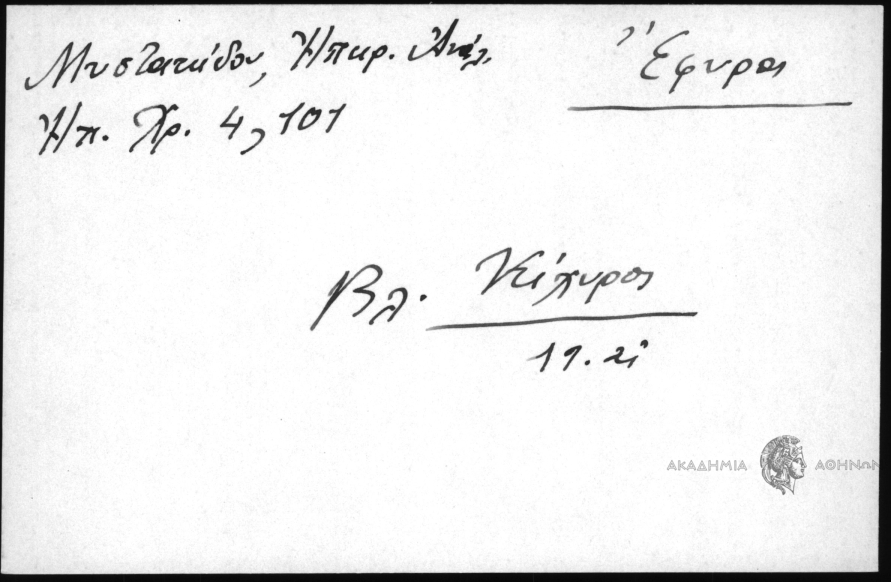 Μυστακίδου, Ἠπειρ. Ἀνάλ.
Ἠπ. Χρ. 4, 101
Ἔφυρα
Βλ. Κίχυρος
ΑΚΑΔΗΜΙΑ ΑΘΗΝΩΝ